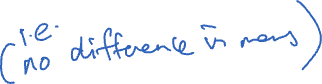 (i.e.
no difference in means)